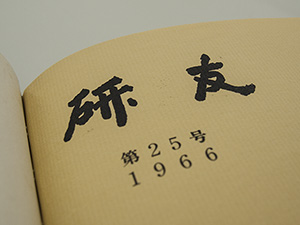 研友
第25号
1966